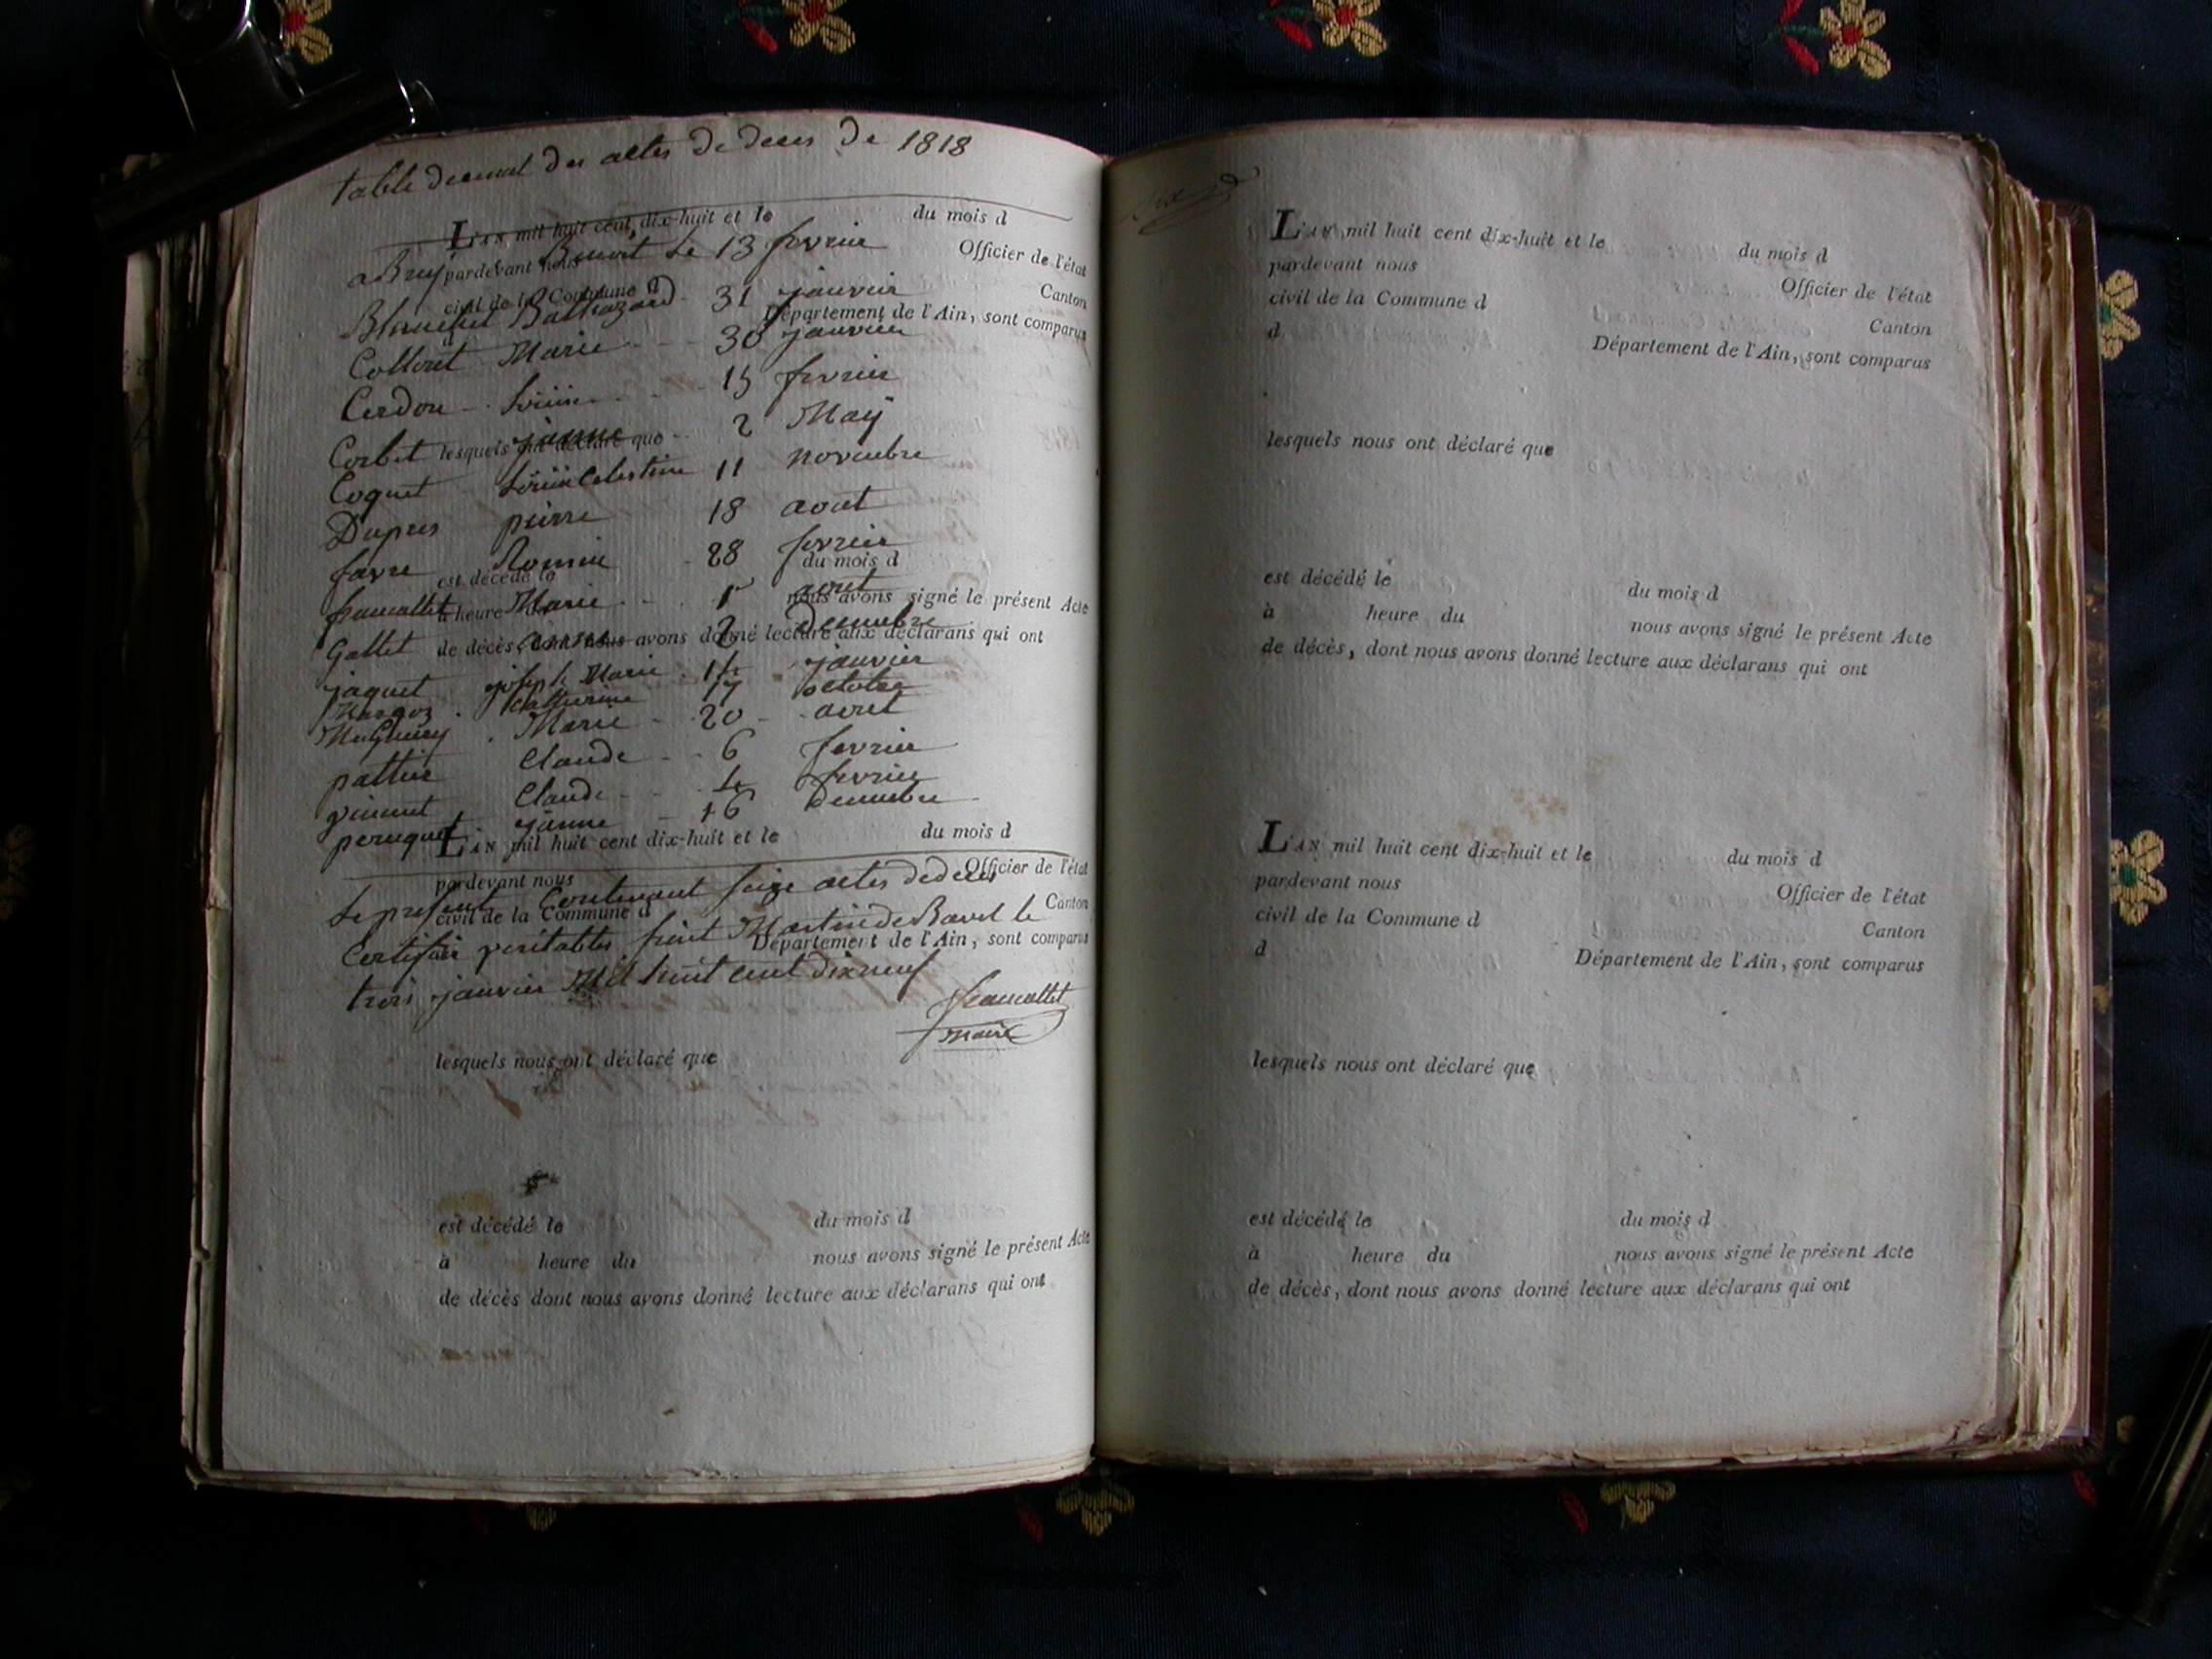 table decenal des actes de deces de 1818
L'AN mil huit cent dix-huit et le du mois d
a Bruy Benoit Le 13 fevrier
pardevant nous Officier de l'état
civil de la Commune d Canton
Blanchet Balthazard 31 janvier
d Département de l'Ain, sont comparus
Colloret Marie 30 janvier
Cerdon 15 fevrier
Corbet janne 2 Maÿ
lesquels ont déclaré que
Coquet Celestine 11 novembre
Dupres pierre 18 aout
favre Romin 28 fevrier
est décédé le du mois d
francallet Marie 1r aout
à heure nous avons signé le présent Acte
Gallet 2 Decembre
de décès dont nous avons donné lecture aux déclarans qui ont
jaquet joseph Marie 14 janvier
Catherine 17 octobre
Marie 20 aout
Claude 6 fevrier
Claude 4 fevrier
peruquet janne 16 Decembre
L'AN mil huit cent dix-huit et le du mois d
pardevant nous Officier de l'état
Le present Contenant seize actes de deces
civil de la Commune d Canton
Certifiée veritables saint Martin de Bavel le
Département de l'Ain, sont comparus
trois janvier Mil huit cent dix neuf
francallet
maire
lesquels nous ont déclaré que
est décédé le du mois d
à heure du nous avons signé le présent Acte
de décès dont nous avons donné lecture aux déclarans qui ont
L'AN mil huit cent dix-huit et le du mois d
pardevant nous Officier de l'état
civil de la Commune d Canton
d Département de l'Ain, sont comparus
lesquels nous ont déclaré que
est décédé le du mois d
à heure du nous avons signé le présent Acte
de décès, dont nous avons donné lecture aux déclarans qui ont
L'AN mil huit cent dix-huit et le du mois d
pardevant nous Officier de l'état
civil de la Commune d Canton
d Département de l'Ain, sont comparus
lesquels nous ont déclaré que
est décédé le du mois d
à heure du nous avons signé le présent Acte
de décès, dont nous avons donné lecture aux déclarans qui ont